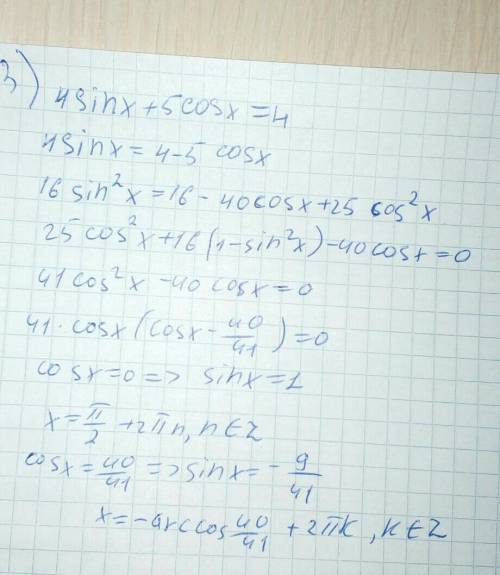 3) 4sinx+5cosx=4
4sinx=4-5 cosx
16 sin²x=16-40cosx+25 cos²x
25cos²x+16(1-sin²x)-40cosx=0
41cos²x-40cosx=0
41·cosx(cosx-40/41)=0
cosx=0=> sinx=1
x=π/2+2πn, n∈Z
cosx=40/41=>sinx=-9/41
x=-arccos 40/41+2πk, k∈Z